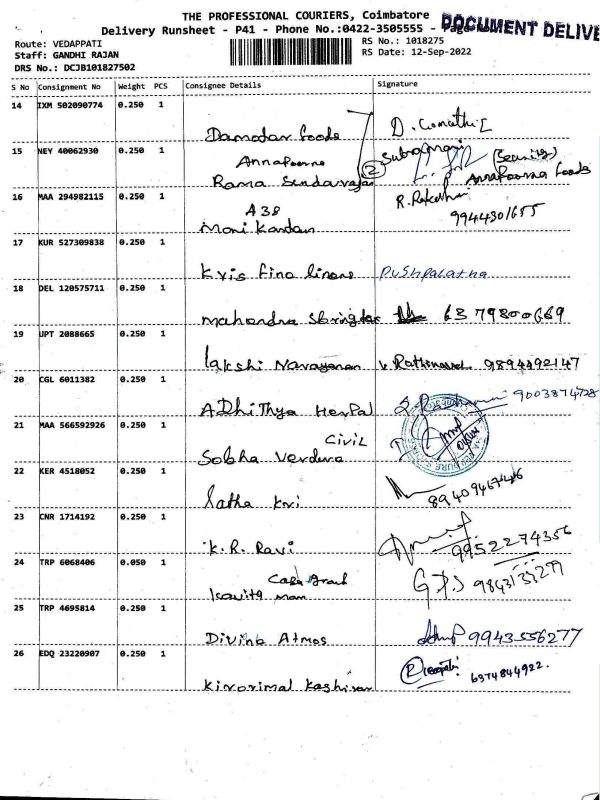 THE PROFESSIONAL COURIERS, Coimbatore
Delivery Runsheet - P41 - Phone No.:0422-3505555 - Page
DOCUMENT DELIVE
Route: VEDAPPATI
Staff: GANDHI RAJAN
DRS No.: DCJB101827502
RS No.: 1018275
RS Date: 12-Sep-2022
S No Consignment No Weight PCS Consignee Details Signature
14 IXM 502090774 0.250 1
Damodar foods D. Gomathi
15 NEY 40062930 0.250 1
Annapoorna
2
(Security)
Annapoorna foods
16 MAA 294982115 0.250 1
A38
Mani Kandan
9944301655
17 KUR 527309838 0.250 1
Kris fino linons Pushpalatha
18 DEL 120575711 0.250 1
6379800669
19 JPT 2088665 0.250 1
lakshi Narayanan V. Rathinavel 9894492147
20 CGL 6011382 0.250 1
Adhithya Herpal 9003874728
21 MAA 566592926 0.250 1
Civil
Sobha Verdure
22 KER 4518052 0.250 1
latha
23 CNR 1714192 0.250 1
K. R. Ravi 9952274356
24 TRP 6068406 0.050 1
25 TRP 4695814 0.250 1
Divine Atmos 9943556277
26 EDQ 23220907 0.250 1
6374844922.